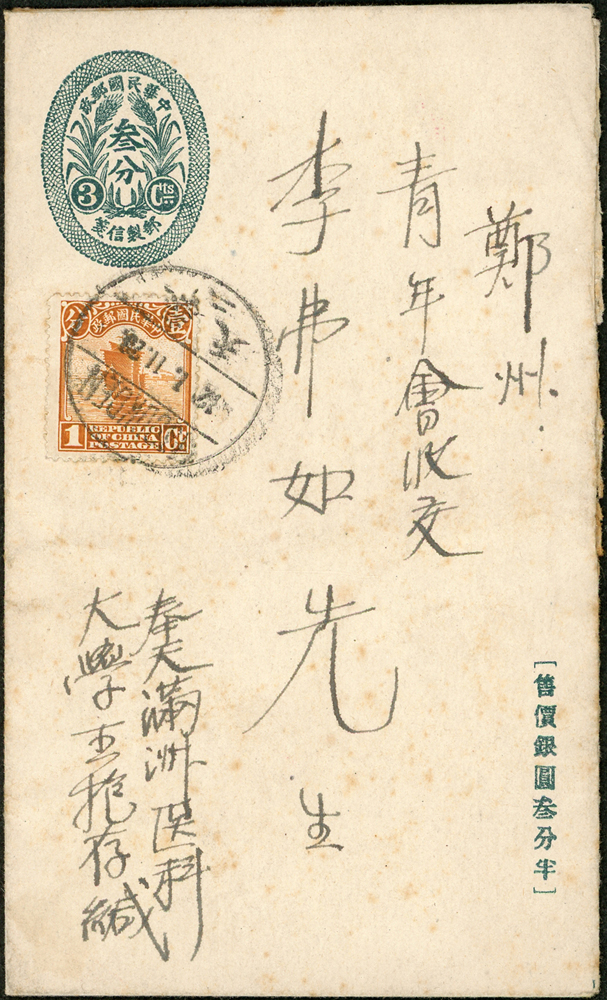 中華民國郵政
叁分
3 Cts
郵製信箋
中華民國郵政
壹分
REPUBLIC
OF CHINA
POSTAGE
1
鄭州
青年會收交
李弗如先生
奉天滿洲医科
大學王抱存緘
[售價銀圓叁分半]